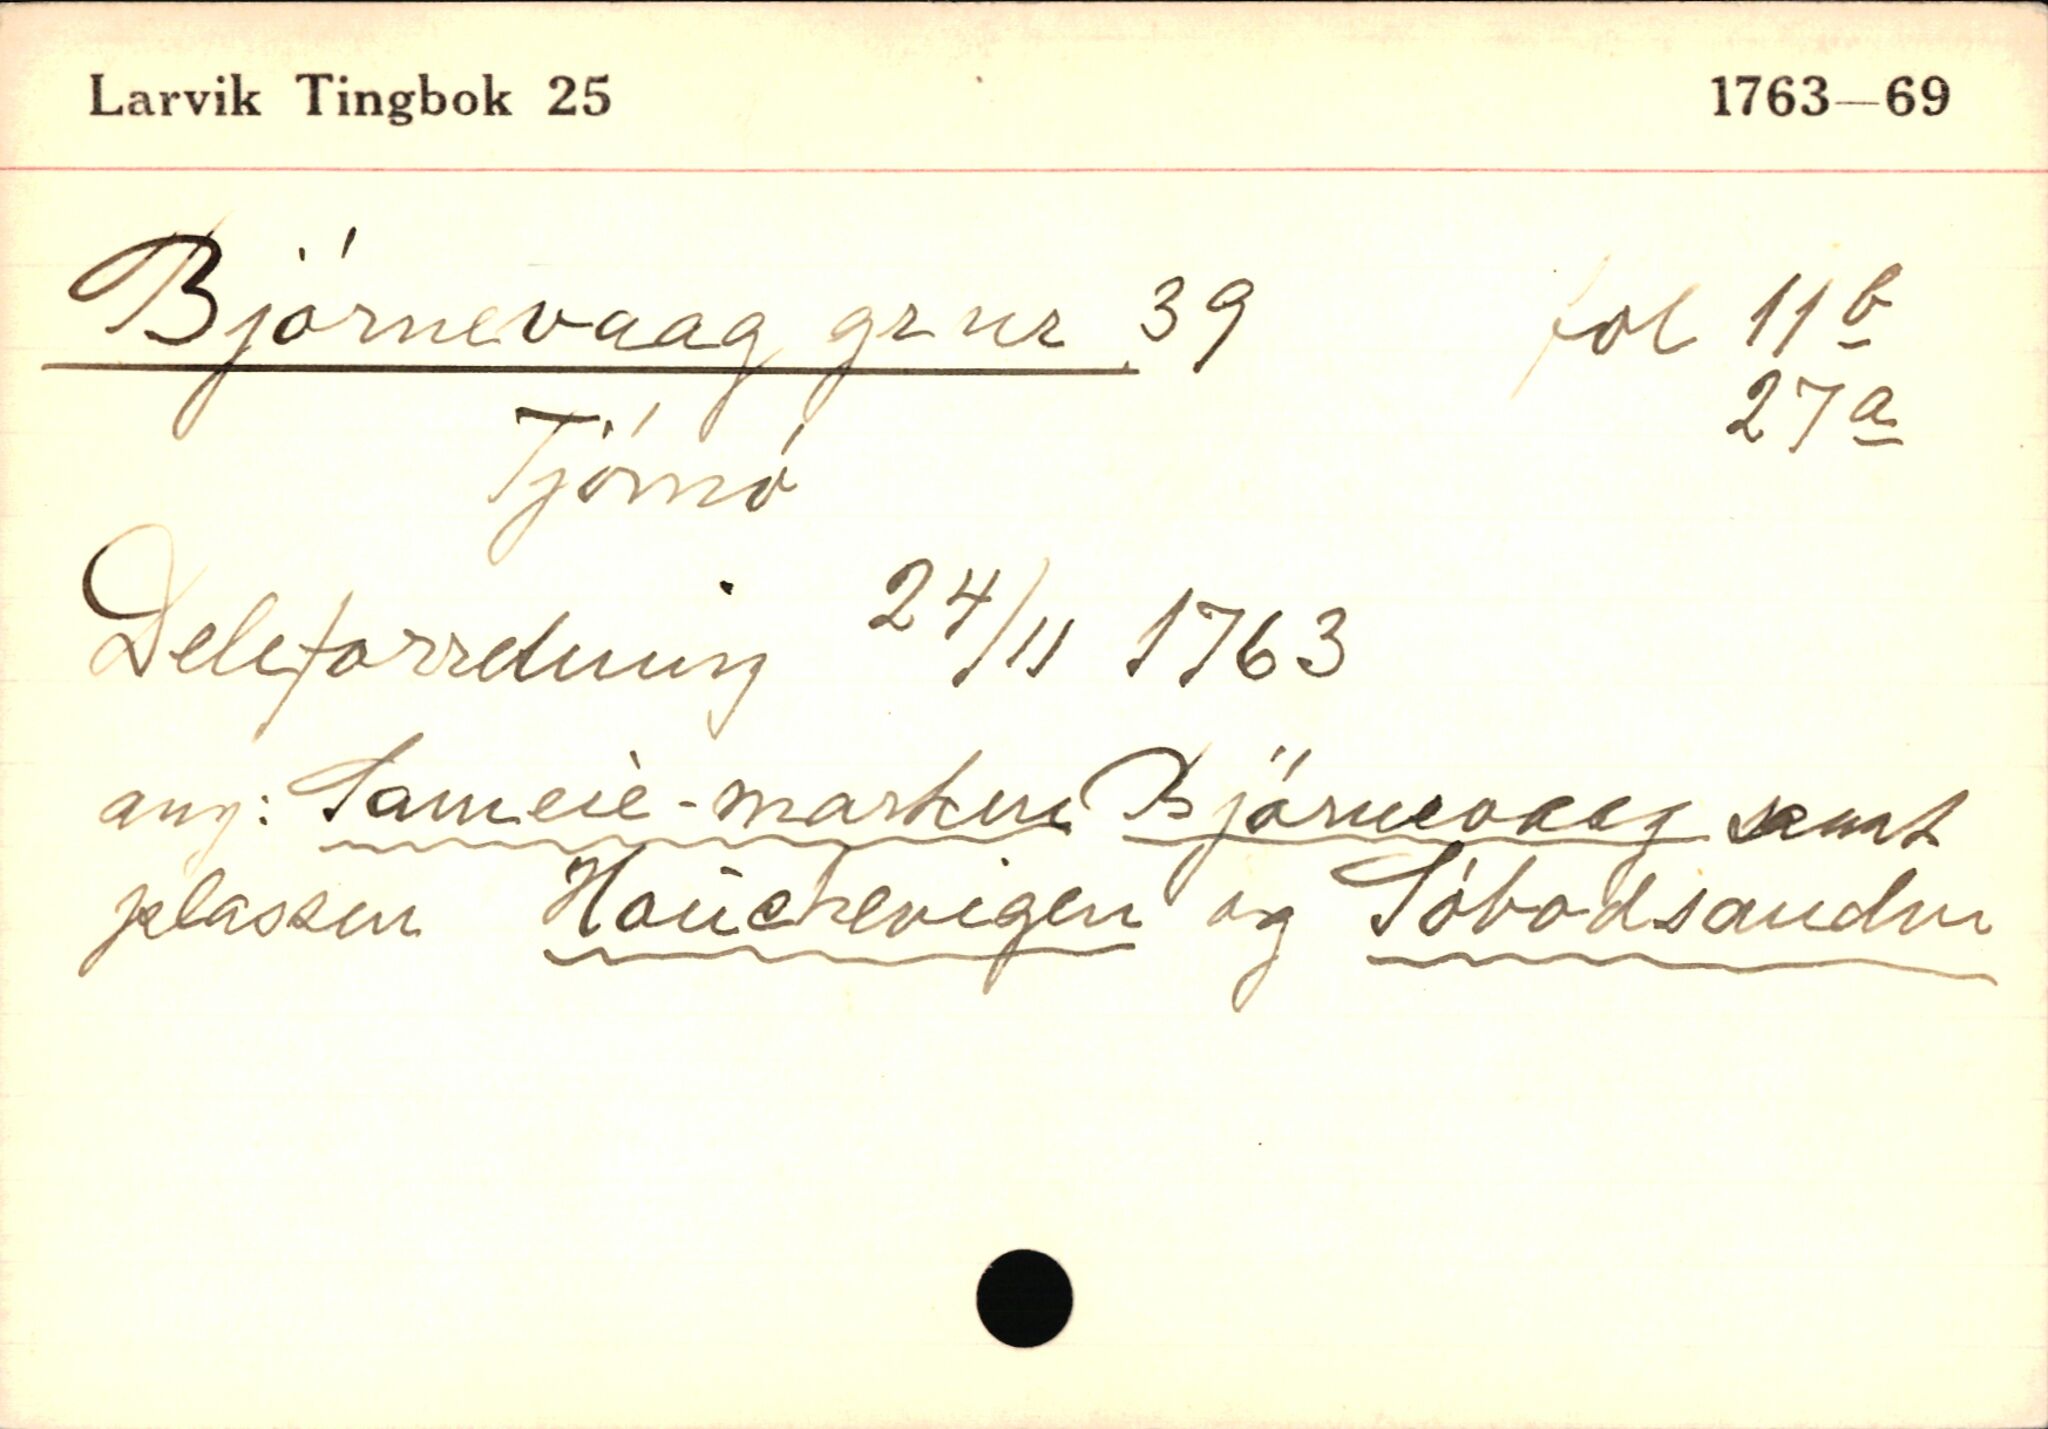 Larvik Tingbok 25 1763—69
Bjørnevaag gr nr 39 fol 11b
27a
Tjømø
Deleforretning 24/11 1763
ang: Sameie-marken Bjørnevaag samt
plassen Hauchevigen og Søbodsanden